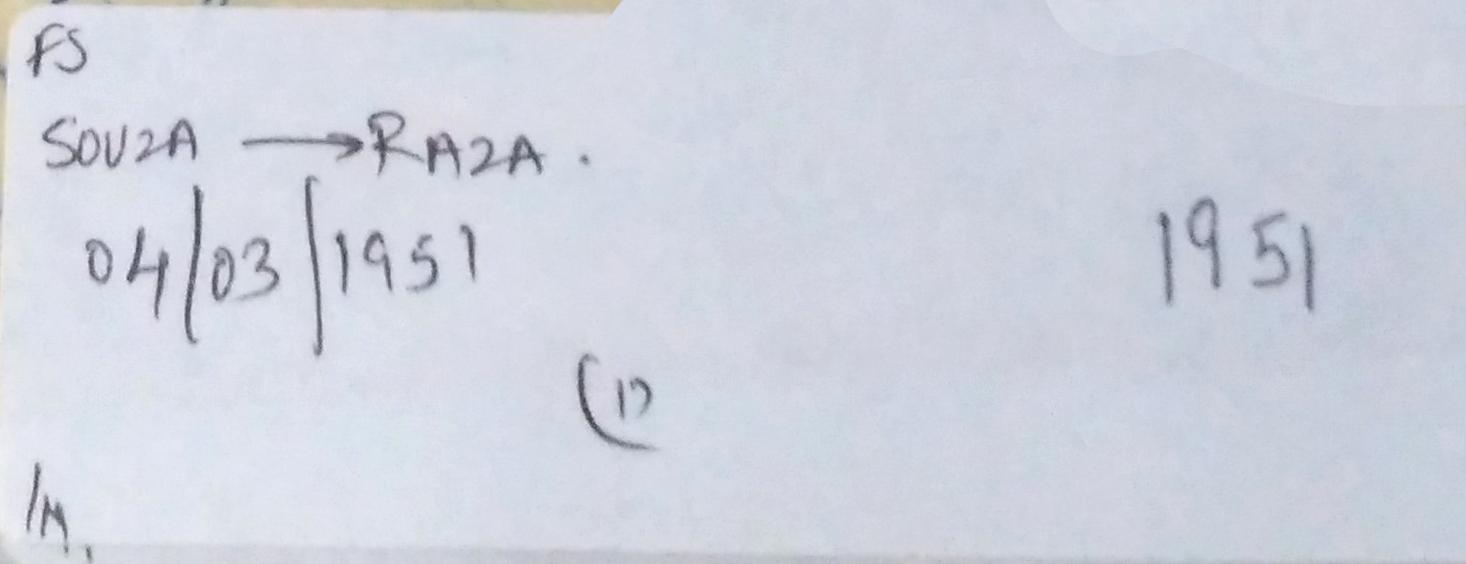 FS
SOUZA → RAZA.
04/03/1951
1951
(1)